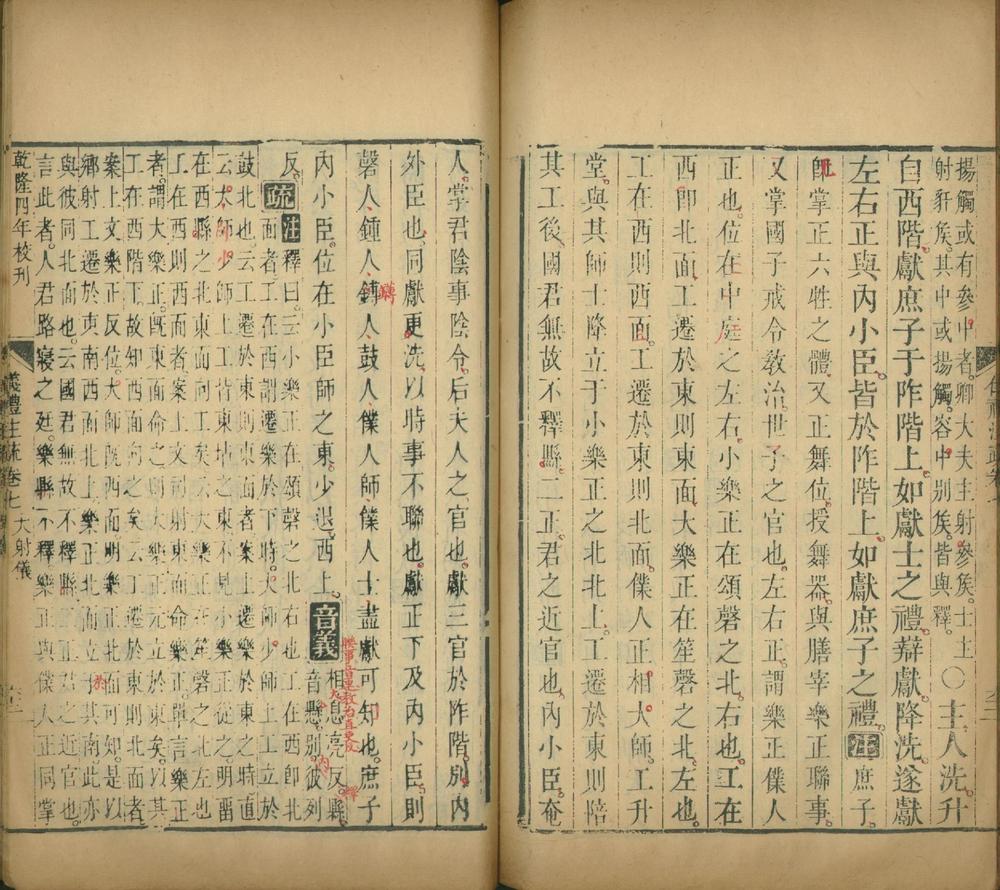 揚觸或有參中者卿大夫主射參矦士主
射豻矦其中或揚觸容中別矦皆與釋○主人洗升
自西階獻庶子于阼階上如獻士之禮辯獻降洗遂獻
左右正與內小臣皆於阼階上如獻庶子之禮注庶子
旣掌正六牲之體又正舞位授舞器與膳宰樂正聯事
又掌國子戒令敎治世子之官也左右正謂樂正僕人
正也位在中庭之左右小樂正在頌磬之北右也工在
西卽北面工遷於東則東面大樂正在笙磬之北左也
工在西則西面工遷於東則北面僕人正相大師工升
堂與其師士降立于小樂正之北北上工遷於東則陪
其工後國君無故不釋縣二正君之近官也內小臣奄
人掌君陰事陰令后夫人之官也獻三官於阼階別內
外臣也同獻更洗以時事不聯也獻正下及內小臣則
磬人鍾人鎛人鼓人僕人師僕人士盡獻可知也庶子
內小臣位在小臣師之東少退西上音義相息亮反縣
音懸別彼列
反疏注釋曰云小樂正在頌磬之北右也工在西卽北
面者工在西謂遷樂於下時大師少師上工立於
鼓北也云工遷於東則東面者案上遷樂於東之時直
云大師少師上工皆東坫之東不見小樂正從之明畱
在西縣之北東面向工矣云大樂正在笙磬之北左也
工在西則西面者案上文司射東面命樂正單言樂正
者謂大樂正旣東面命之則大樂正元立於東矣以其
工在西階工故知西面向之矣云工遷於東則北面者
案上文樂正反位大師旣西面明樂正北面可知是以
鄉射工遷於東南西面北上樂正北面立於其南此亦
與彼同北面也云國君無故不釋縣二正君之近官也
言此者人君路寢之廷樂縣不釋樂正與僕人正同掌
乾隆四年校刊
儀禮注疏卷七 大射儀